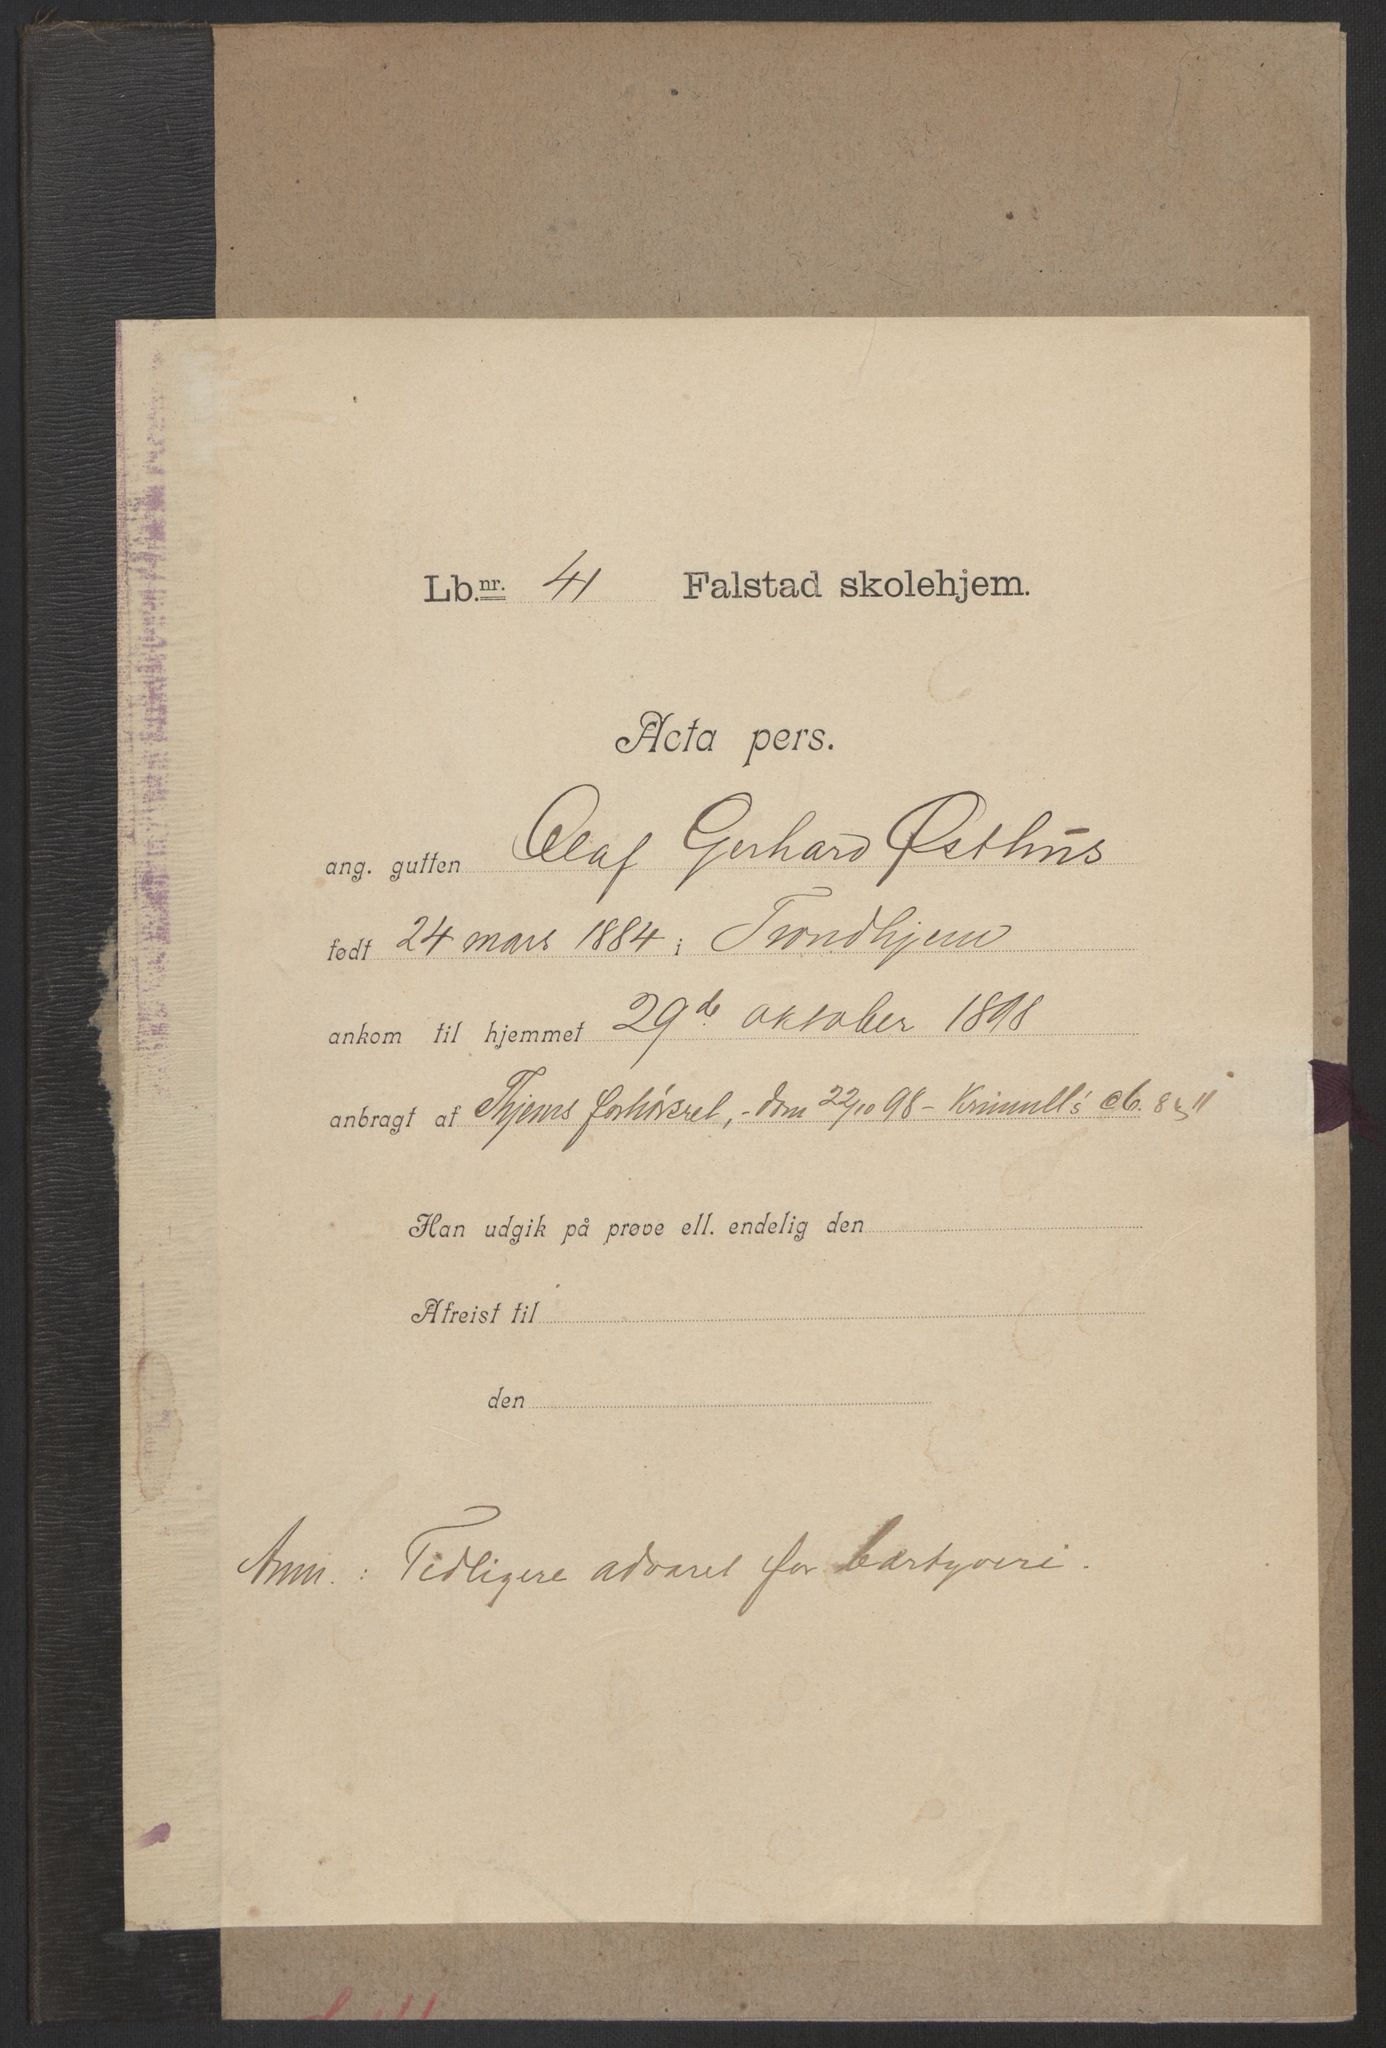 Lb.nr. 41 Falstad skolehjem.
Acta pers.
ang. gutten Olaf Gerhard Østhus
født 24 mars 1884 i Trondhjem
ankom til hjemmet 29de oktober 1898
anbragt af Thjems forhørsret, - dom 22/10 98 -
Han udgik på prøve ell. endelig den
Afreist til
den
Anm. : Tidligere advaret for bærtyveri.